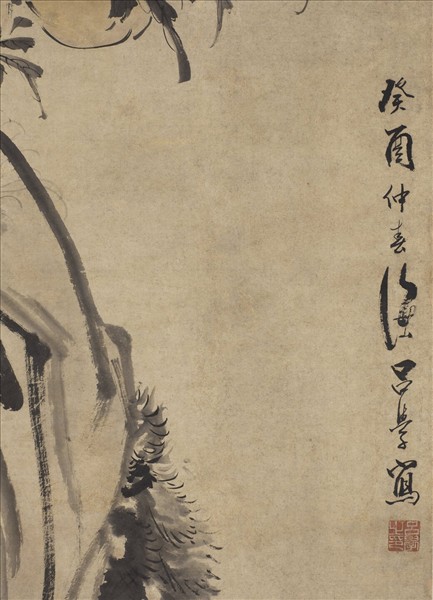 癸酉仲春呂學寫